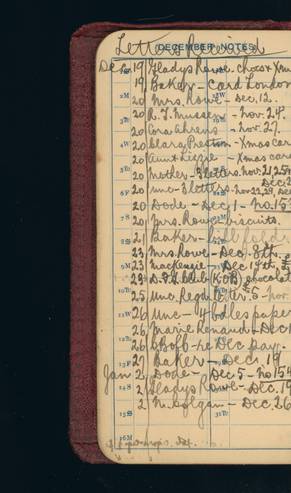 Letters Received
DECEMBER NOTES
Dec 19 Gladys Rowe. chocs & Xm
19 Baker - card London
20 Mrs. Rowe - Dec. 12.
20 R. J. - nov. 24.
20 Cora Ahrens - nov. 27.
20 Clara Preston - Xmas car
20 Aunt Lizzie - Xmas card
20 Mother - 3 letters. nov. 21, 25
Dec. 2
20 unc - 3 letters. nov 22, 29, Dec
20 Dode - Dec 1 - no. 153
20 Mrs. Rowe biscuits.
21 Baker - bill folds.
23 Mrs Rowe - Dec. 8th.
23 Mackenzie - Dec 19th.
23 chocolat
25 unc. Reg'd letter. £5 - nov.
26 unc - 4 bdles paper
26 Marie Renaud - Dec 1
26 re Dec pay.
27 Baker - Dec. 19
Jan 2 Dode - Dec 5 - no 154
2 Gladys Rowe - Dec. 19
2 N. Colgan - Dec 26